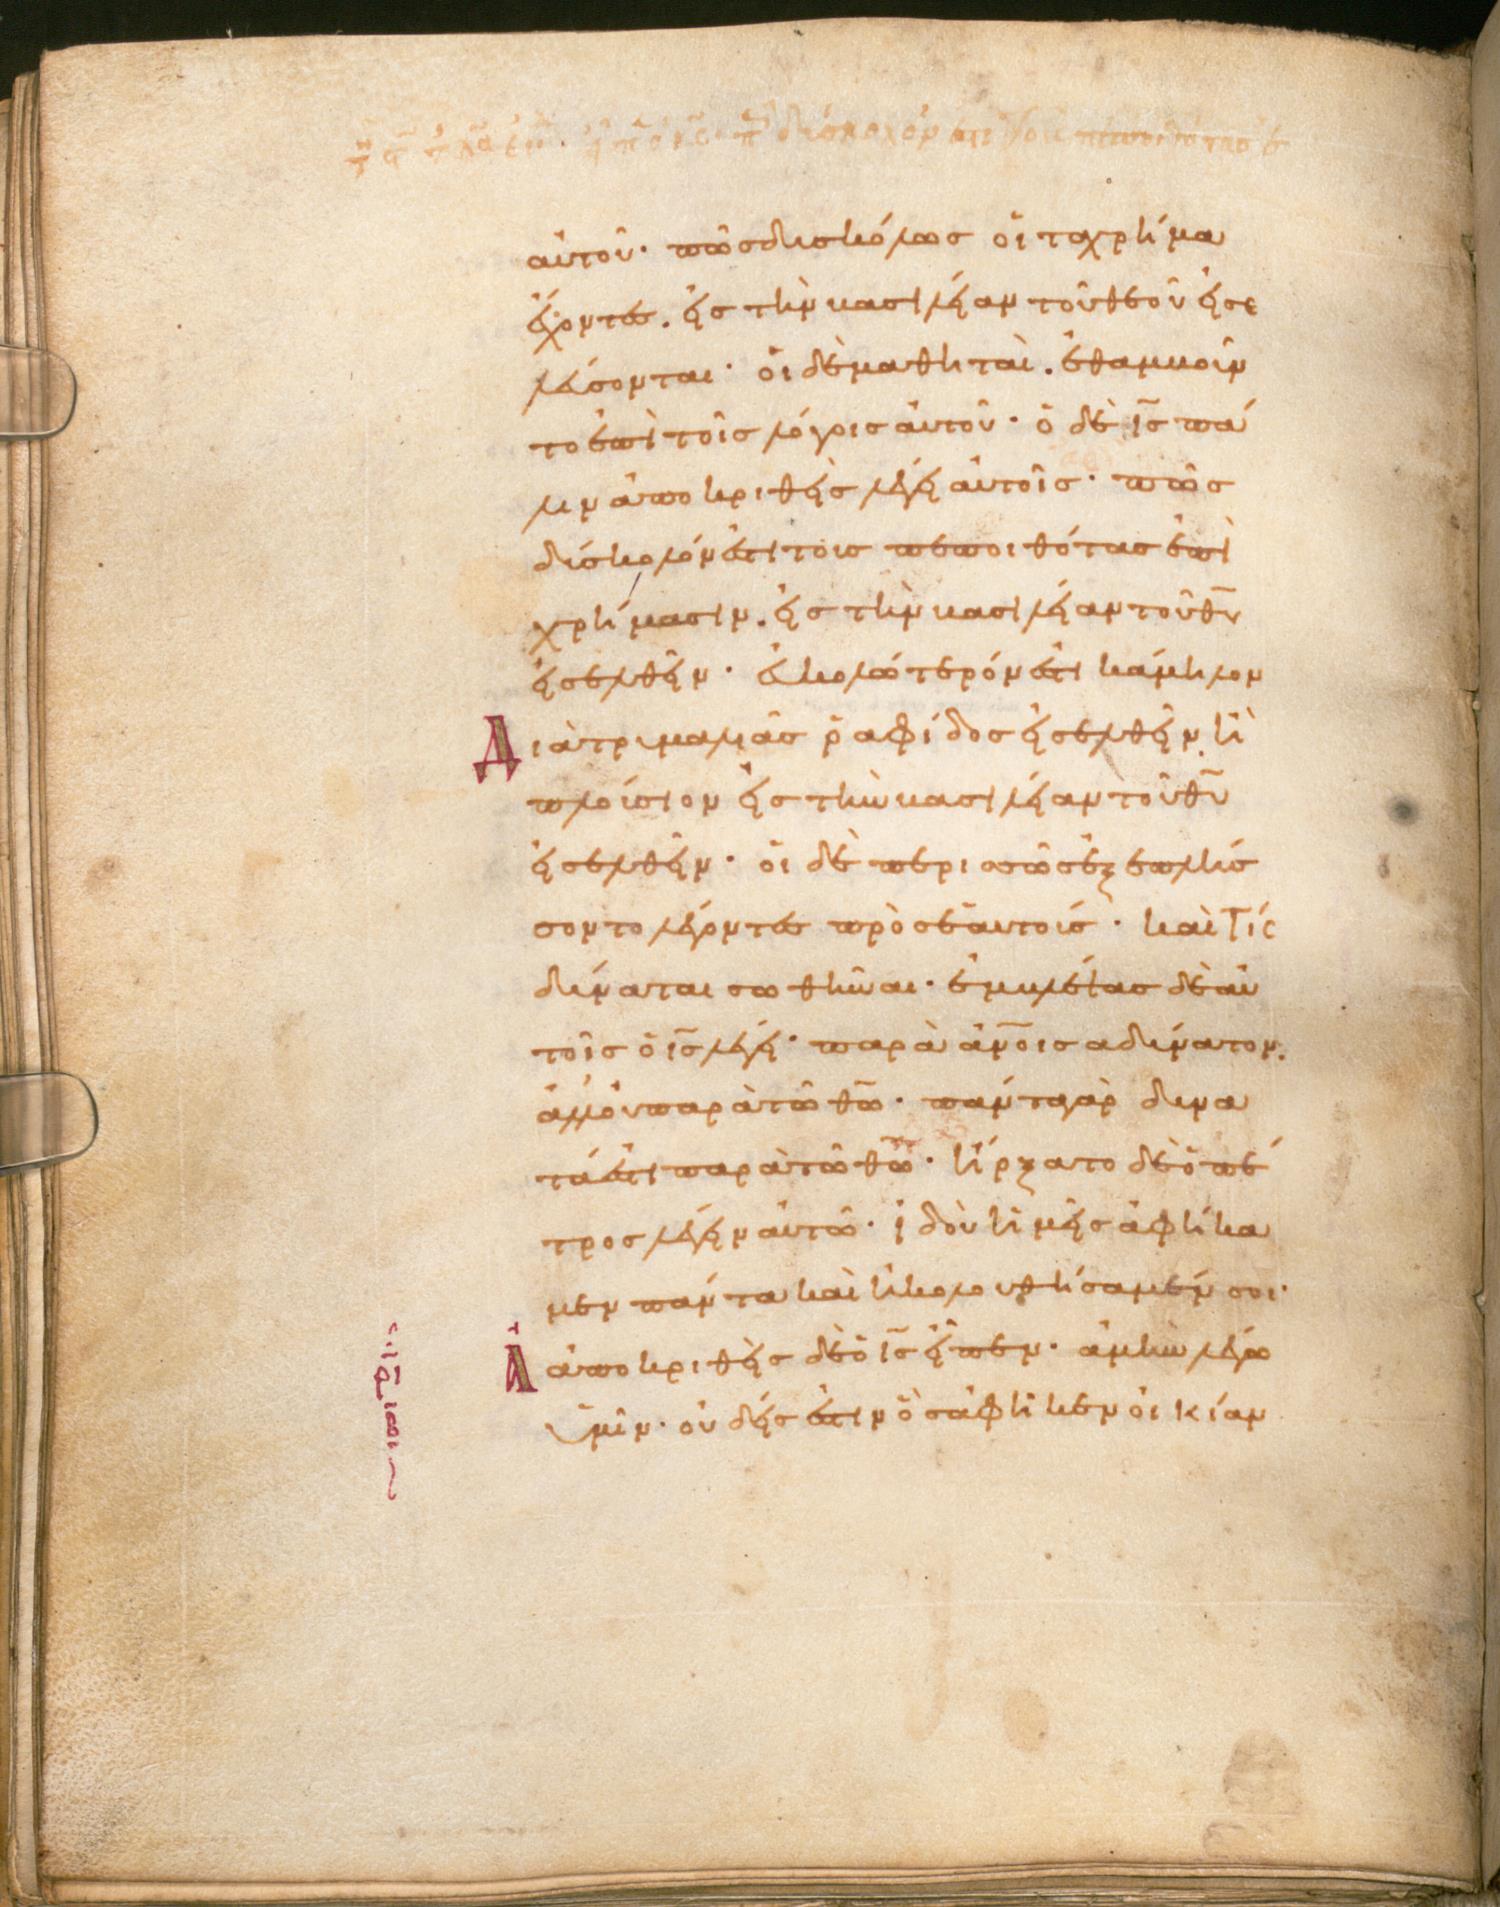 αὐτοῦ· πῶς δυσκόλως οἱ τα χρήμα
ἔχοντες. εἰς τὴν βασιλείαν τοῦ θεοῦ εἰσε
λεύσονται· οἱ δὲ μαθηταὶ. ἐθαμβοῦν
το ἐπὶ τοῖς λόγοις αὐτοῦ· ὁ δὲ ι̅ς̅ πά
λιν ἀποκριθεὶς λέγει αὐτοῖς· πῶς
δύσκολόν ἐστι τοὺς πεποιθότας ἐπὶ
χρήμασιν. εἰς τὴν βασιλείαν τοῦ θ̅υ̅
εἰσελθεῖν· εὐκολώτερόν ἐστι κάμηλον
Διὰ τρυμαλιᾶς ῥαφίδος εἰσελθεῖν ἢ
πλούσιον εἰς τὴν βασιλείαν τοῦ θ̅υ̅
εἰσελθεῖν· οἱ δὲ περισσῶς ἐξεπλήσ
σοντο λέγοντες πρὸς ἑαυτούς· καὶ τίς
δύναται σωθῆναι· ἐμβλέψας δὲ αὐ
τοῖς ὁ ι̅ς̅ λέγει· παρὰ ἀν̅οις αδύνατον.
ἀλλ' οὐ παρὰ τῶ θ̅ω̅· πάντα γὰρ δυνα
τά ἐστι παρὰ τῶ θ̅ω̅· ἤρξατο δὲ ὁ πέ
τρος λέγειν αὐτῶ· ἰδοὺ ἡμεῖς ἀφήκα
μεν πάντα καὶ ἠκολουθήσαμέν σοι·
Α ἀποκριθεὶς δὲ ὁ ι̅ς̅ εἶπεν· ἀμὴν λέγω
ὑμῖν· οὐδείς ἐστιν ὃς ἀφῆκεν οἰκίαν